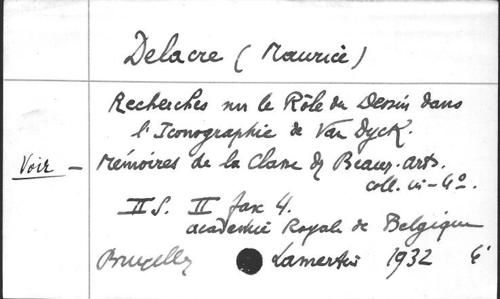 Delacre (Maurice)
Recherches sur le Rôle du Dessin dans
l'Iconographie de Van Dyck.
Voir - Mémoires de la Classe des Beaux-Arts.
coll. in-4º.
II S. II fasc 4.
académie Royale de Belgique
Bruxelles Lamertin 1932